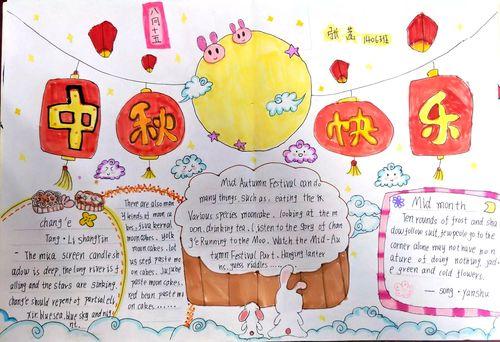 八月十五
张蕊 1406班
中秋快乐
chang'e
Tang · Li Shangyin
The mica screen candle sh
adow is deep, the long river is f
alling and the stars are sinking.
chang'e should repent of partial eli
xir. blue sea, blue sky and nig
ht.
There are also man
y kinds of moon ca
kes: five kernel
moon cakes, yolk
moon cakes, lot
us seed paste mo
on cakes, jujube
paste moon cakes,
red bean paste mo
on cakes......
Mid Autumn Festival can do
many things, such as, eating the
Various species mooncake, looking at the m
oon, drinking tea, Listen to the story of Chan
g'e Running to the Moo, Watch the Mid-Au
tumn Festival Part, Hanging lanter
ns, guess riddles......
Mid month
Ten rounds of frost and sha
dow follow suit, tewpeole go to the
corner alone may not have non
ature of doing nothing, jad
e green and cold flowers.
— song · yanshu